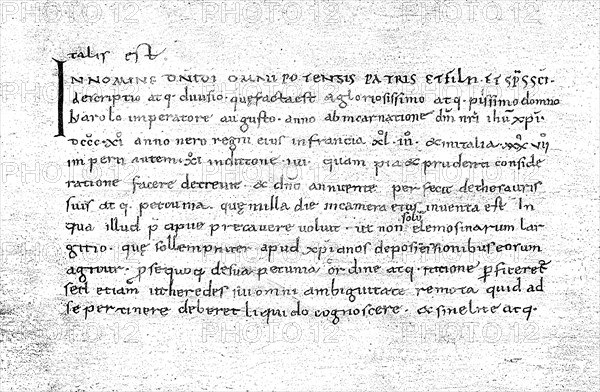 talis est
IN NOMINE DNI DI OMNIPOTENSIS PATRIS ET FILII · ET SPS SCI ·
descriptio atq. diuisio · que facta est a gloriosissimo atq. piissimo domno
karolo imperatore augusto · anno ab incarnatione dni nri ihu xpi ·
DCCC · XI anno uero regni eius in francia XLIII · & in italia XXXVII
imperii autem · XI indictione IIII · quam pia & prudenti conside
ratione facere decreuit · & dno annuente perfecit de thesauris
suis atq. pecunia · que in illa die in camera eius inuenta est In
qua illud p̄cipue precauere uoluit · ut non solu elemosinarum lar
gitio · que sollempniter apud xpianos de possessionibus eorum
agitur · p̄ se quoq. de sua pecunia ordine atq. ratione p̄ficeret
sed etiam ut heredes sui omni ambiguitate remota quid ad
se pertinere deberet liquido cognoscere · & similite atq.
PHOTO 12